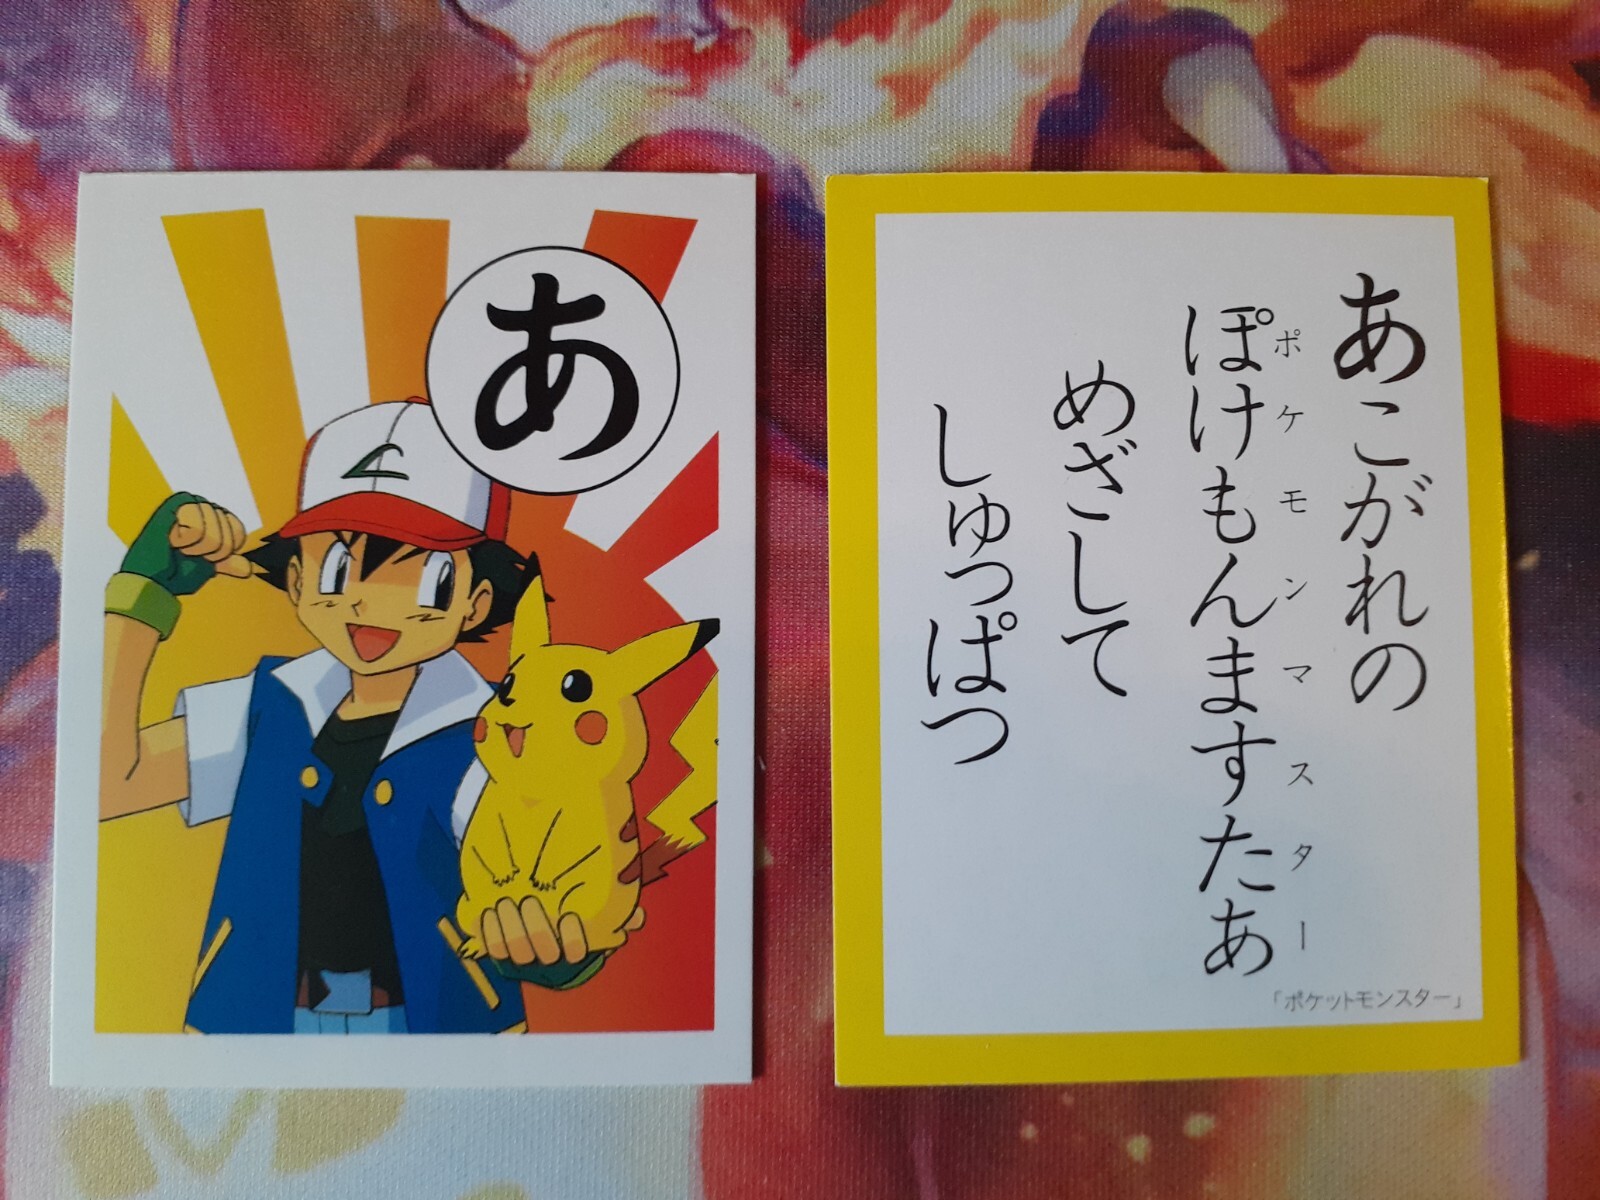 あ
あこがれの
ぽけもんますたあ
ポケモンマスター
めざして
しゅっぱつ
「ポケットモンスター」